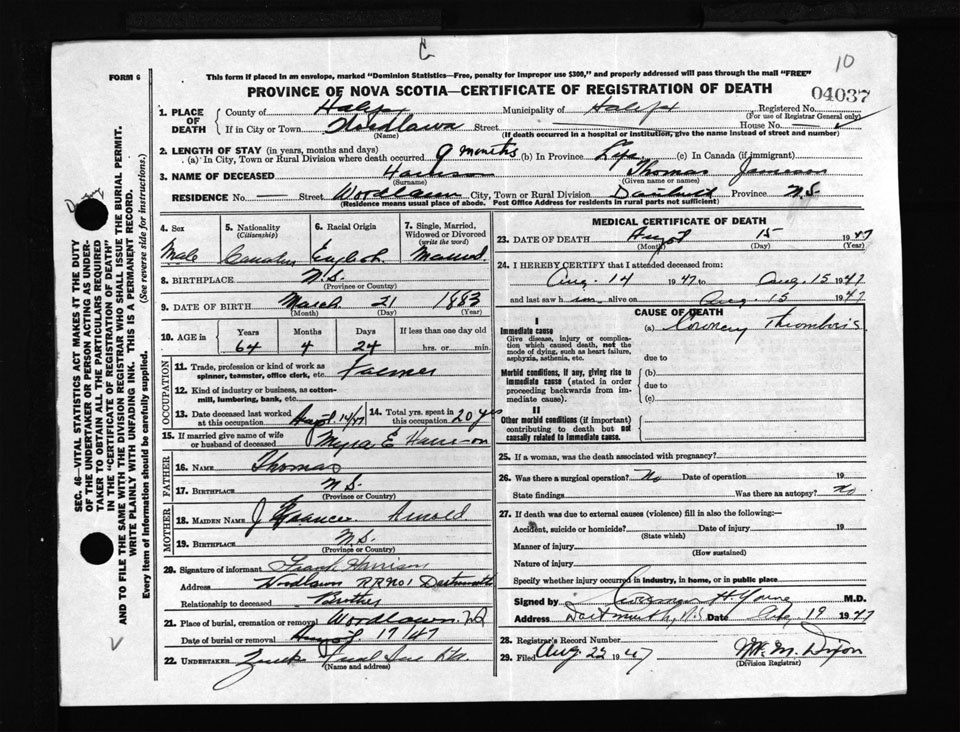 10
FORM 6
This form if placed in an envelope, marked "Dominion Statistics—Free, penalty for improper use $300," and properly addressed will pass through the mail "FREE"
PROVINCE OF NOVA SCOTIA—CERTIFICATE OF REGISTRATION OF DEATH 04037
1. PLACE OF DEATH County of Halifax Municipality of Halifax Registered No. (For use of Registrar General only)
If in City or Town Woodlawn Street House No.
(Name) (If death occurred in a hospital or institution, give the name instead of street and number)
2. LENGTH OF STAY (in years, months and days)
(a) In City, Town or Rural Division where death occurred 9 months (b) In Province Life (c) In Canada (if immigrant)
3. NAME OF DECEASED Harrison Thomas
(Surname) (Given name or names)
RESIDENCE No. Street Woodlawn City, Town or Rural Division Province N.S
(Residence means usual place of abode. Post Office Address for residents in rural parts not sufficient)
4. Sex 5. Nationality (Citizenship) 6. Racial Origin 7. Single, Married, Widowed or Divorced (write the word)
Male Canadian English Married
8. BIRTHPLACE N.S.
(Province or Country)
9. DATE OF BIRTH March 21 1883
(Month) (Day) (Year)
10. AGE in Years Months Days If less than one day old
64 4 24 hrs. or min.
OCCUPATION
11. Trade, profession or kind of work as spinner, teamster, office clerk, etc. Farmer
12. Kind of industry or business, as cotton-mill, lumbering, bank, etc.
13. Date deceased last worked at this occupation 14/47 14. Total yrs. spent in this occupation 20 yrs
15. If married give name of wife or husband of deceased Myra E Harrison
FATHER
16. NAME Thomas
17. BIRTHPLACE N.S.
(Province or Country)
MOTHER
18. MAIDEN NAME Arnold
19. BIRTHPLACE N.S.
(Province or Country)
20. Signature of informant Frank Harrison
Address Woodlawn RR No 1 Dartmouth
Relationship to deceased Brother
21. Place of burial, cremation or removal Woodlawn
Date of burial or removal 17/47
22. UNDERTAKER
(Name and address)
MEDICAL CERTIFICATE OF DEATH
23. DATE OF DEATH August 15 1947
(Month) (Day) (Year)
24. I HEREBY CERTIFY that I attended deceased from:
Aug. 14 1947 to Aug. 15 1947
and last saw him alive on Aug. 15 1947
CAUSE OF DEATH
I
Immediate cause (a) Coronary Thrombosis
Give disease, injury or complication which caused death, not the mode of dying, such as heart failure, asphyxia, asthenia, etc. due to
Morbid conditions, if any, giving rise to immediate cause (stated in order proceeding backwards from immediate cause). (b) due to (c)
II
Other morbid conditions (if important) contributing to death but not causally related to immediate cause.
25. If a woman, was the death associated with pregnancy?
26. Was there a surgical operation? No Date of operation 19
State findings Was there an autopsy? No
27. If death was due to external causes (violence) fill in also the following:—
Accident, suicide or homicide? Date of injury 19
(State which)
Manner of injury
(How sustained)
Nature of injury
Specify whether injury occurred in industry, in home, or in public place
Signed by H. Young M.D.
Address Dartmouth, N.S Date Aug 19 1947
28. Registrar's Record Number
29. Filed Aug 22 1947 M. Dixon
(Division Registrar)
SEC. 46—VITAL STATISTICS ACT MAKES IT THE DUTY
OF THE UNDERTAKER OR PERSON ACTING AS UNDER-
TAKER TO OBTAIN ALL THE PARTICULARS REQUIRED
IN THE "CERTIFICATE OF REGISTRATION OF DEATH"
AND TO FILE THE SAME WITH THE DIVISION REGISTRAR WHO SHALL ISSUE THE BURIAL PERMIT.
WRITE PLAINLY WITH UNFADING INK. THIS IS A PERMANENT RECORD.
Every item of Information should be carefully supplied. (See reverse side for instructions.)